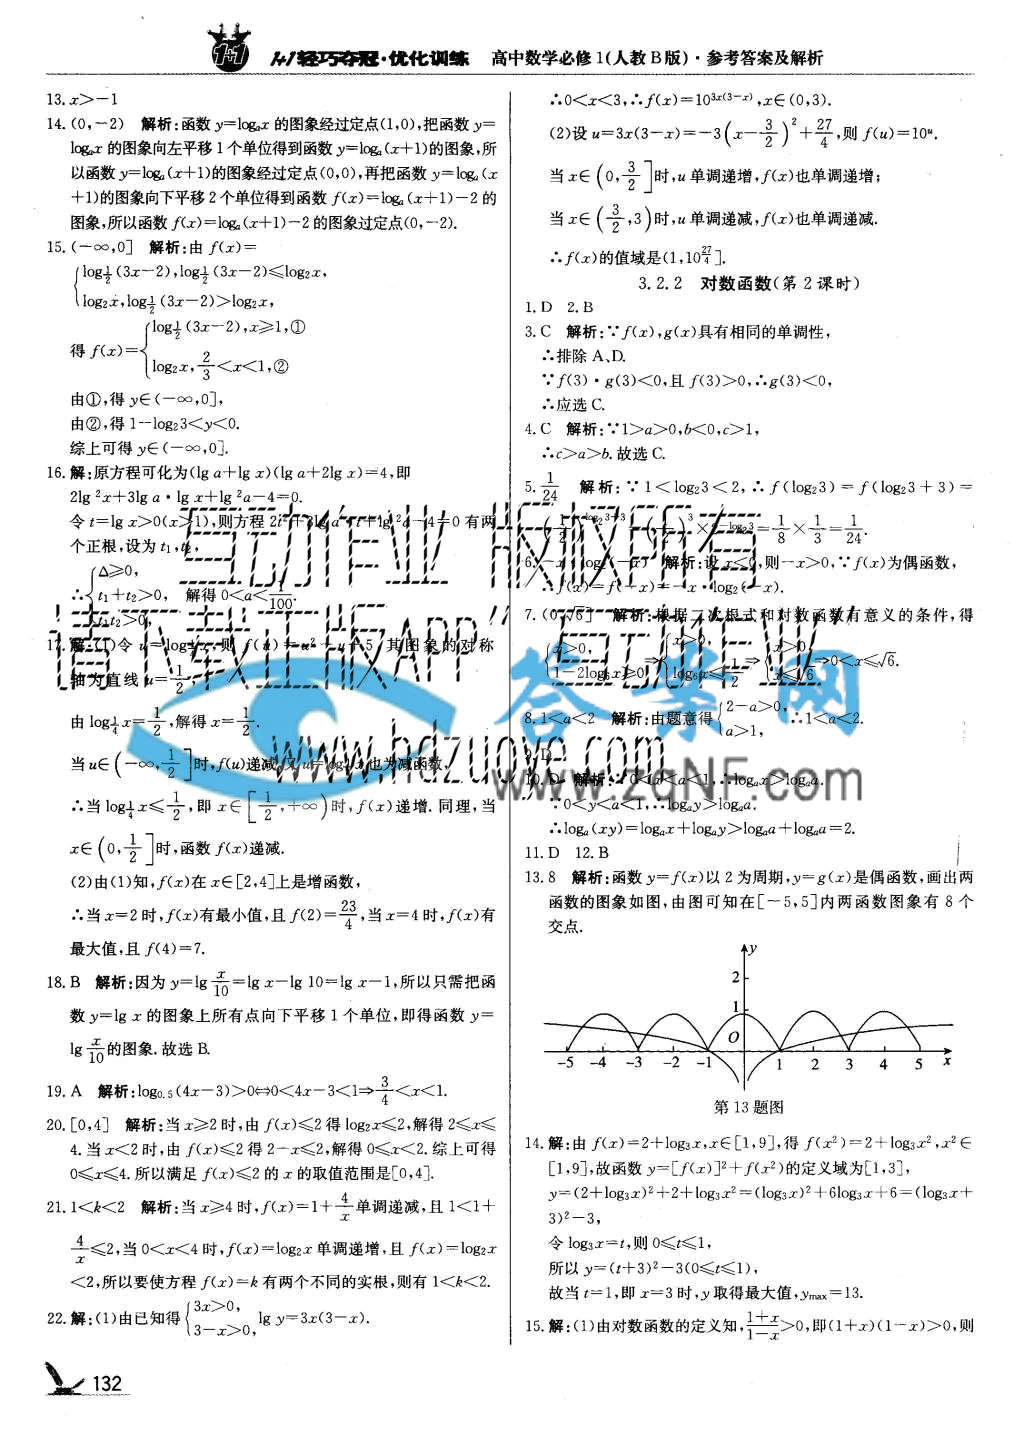 1+1轻巧夺冠·优化训练 高中数学必修1(人教B版)·参考答案及解析
13. x>-1
14. (0,-2) 解析:函数 y=logₐx 的图象经过定点(1,0),把函数 y=
logₐx 的图象向左平移1个单位得到函数 y=logₐ(x+1)的图象,所
以函数 y=logₐ(x+1)的图象经过定点(0,0),再把函数 y=logₐ(x
+1)的图象向下平移2个单位得到函数 f(x)=logₐ(x+1)-2 的
图象,所以函数 f(x)=logₐ(x+1)-2 的图象过定点(0,-2).
15. (-∞,0] 解析:由 f(x)=
{log½(3x-2),log½(3x-2)≤log₂x,
log₂x,log½(3x-2)>log₂x,
得 f(x)={log½(3x-2),x≥1,①
log₂x,2/3<x<1,②
由①,得 y∈(-∞,0],
由②,得 1-log₂3<y<0.
综上可得 y∈(-∞,0].
16. 解:原方程可化为(lg a+lg x)(lg a+2lg x)=4,即
2lg ²x+3lg a·lg x+lg ²a-4=0.
令 t=lg x>0(x>1),则方程 2t²+3lg a·t+lg ²a-4=0 有两
个正根,设为 t₁,t₂,
∴{Δ≥0,
t₁+t₂>0, 解得 0<a<1/100.
t₁t₂>0,
17. 解:(1)令 u=log¼x,则 f(u)=u²-u+5,其图象的对称
轴为直线 u=1/2,
由 log¼x=1/2,解得 x=1/2.
当 u∈(-∞,1/2]时,f(u)递减,又 u=log¼x 也为减函数,
∴当 log¼x≤1/2,即 x∈[1/2,+∞)时,f(x)递增. 同理,当
x∈(0,1/2]时,函数 f(x)递减.
(2)由(1)知,f(x)在 x∈[2,4]上是增函数,
∴当 x=2 时,f(x)有最小值,且 f(2)=23/4,当 x=4 时,f(x)有
最大值,且 f(4)=7.
18. B 解析:因为 y=lg x/10=lg x-lg 10=lg x-1,所以只需把函
数 y=lg x 的图象上所有点向下平移1个单位,即得函数 y=
lg x/10的图象.故选B.
19. A 解析:log₀.₅(4x-3)>0⇔0<4x-3<1⇒3/4<x<1.
20. [0,4] 解析:当 x≥2 时,由 f(x)≤2 得 log₂x≤2,解得 2≤x≤
4. 当 x<2 时,由 f(x)≤2 得 2-x≤2,解得 0≤x<2. 综上可得
0≤x≤4. 所以满足 f(x)≤2 的 x 的取值范围是[0,4].
21. 1<k<2 解析:当 x≥4 时,f(x)=1+4/x单调递减,且 1<1+
4/x≤2,当 0<x<4 时,f(x)=log₂x 单调递增,且 f(x)=log₂x
<2,所以要使方程 f(x)=k 有两个不同的实根,则有 1<k<2.
22. 解:(1)由已知得{3x>0, 3-x>0, lg y=3x(3-x).
132
∴0<x<3,∴f(x)=10³ˣ⁽³⁻ˣ⁾,x∈(0,3).
(2)设 u=3x(3-x)=-3(x-3/2)²+27/4,则 f(u)=10ᵘ.
当 x∈(0,3/2]时,u 单调递增,f(x)也单调递增;
当 x∈(3/2,3)时,u 单调递减,f(x)也单调递减.
∴f(x)的值域是(1,10^(27/4)].
3.2.2 对数函数(第2课时)
1. D 2. B
3. C 解析:∵f(x),g(x)具有相同的单调性,
∴排除 A、D.
∵f(3)·g(3)<0,且 f(3)>0,∴g(3)<0,
∴应选 C.
4. C 解析:∵1>a>0,b<0,c>1,
∴c>a>b. 故选 C.
5. 1/24 解析:∵1<log₂3<2,∴f(log₂3)=f(log₂3+3)=
(1/2)^(log₂3+3)=(1/2)³×2^(-log₂3)=1/8×1/3=1/24.
6. -x·log₂(-x) 解析:设 x<0,则-x>0,∵f(x)为偶函数,
∴f(x)=f(-x)=-x·log₂(-x).
7. (0,√6] 解析:根据二次根式和对数函数有意义的条件,得
{x>0, 1-2log₆x≥0⇒{x>0, log₆x≤1/2⇒{x>0, x≤√6⇒0<x≤√6.
8. 1<a<2 解析:由题意得{2-a>0, a>1, ∴1<a<2.
9. D
10. D 解析:∵0<x<a<1,∴logₐx>logₐa.
∵0<y<a<1,∴logₐy>logₐa.
∴logₐ(xy)=logₐx+logₐy>logₐa+logₐa=2.
11. D 12. B
13. 8 解析:函数 y=f(x)以 2 为周期,y=g(x)是偶函数,画出两
函数的图象如图,由图可知在[-5,5]内两函数图象有 8 个
交点.
y
2
1
O
-5 -4 -3 -2 -1 1 2 3 4 5 x
第13题图
14. 解:由 f(x)=2+log₃x,x∈[1,9],得 f(x²)=2+log₃x²,x²∈
[1,9],故函数 y=[f(x)]²+f(x²)的定义域为[1,3],
y=(2+log₃x)²+2+log₃x²=(log₃x)²+6log₃x+6=(log₃x+
3)²-3,
令 log₃x=t,则 0≤t≤1,
所以 y=(t+3)²-3(0≤t≤1),
故当 t=1,即 x=3 时,y 取得最大值,yₘₐₓ=13.
15. 解:(1)由对数函数的定义知,1+x/1-x>0,即(1+x)(1-x)>0,则
互动作业 版权所有
请下载互动版APP"互动作业"
www.hdzuoye.com
答案网
www.zqNF.com